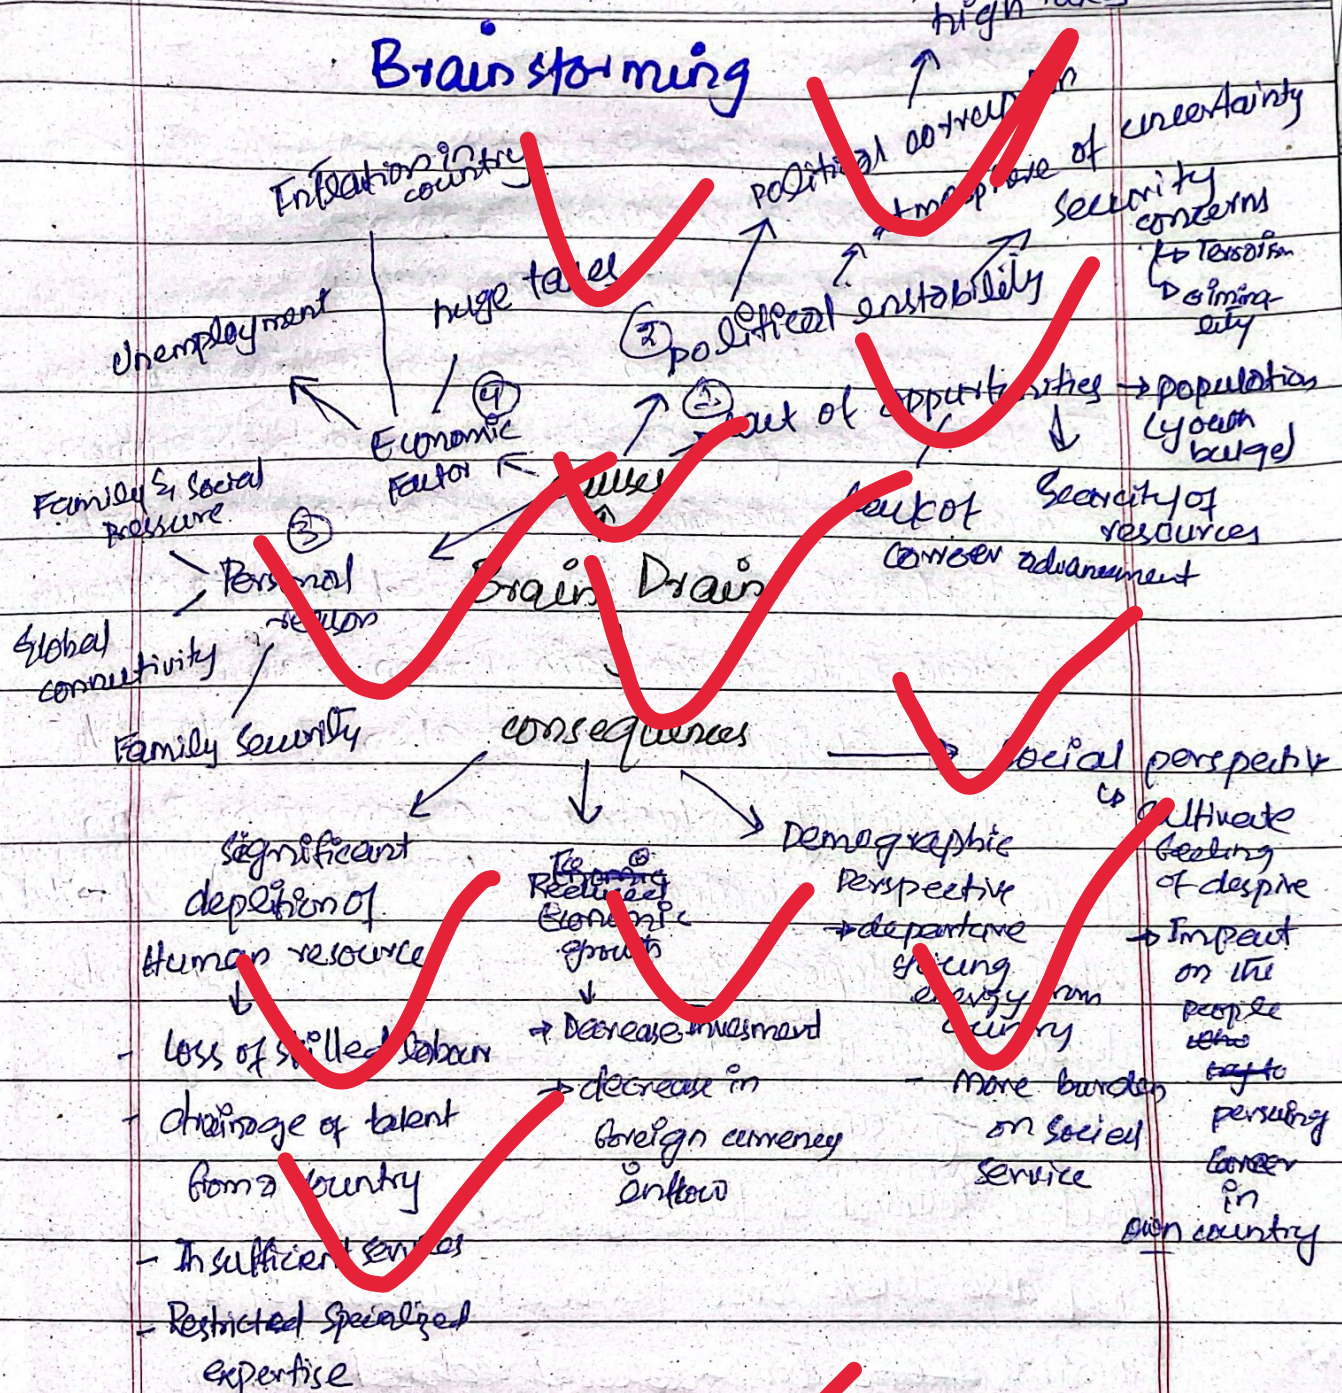 high
Brainstorming
Inflation in
country
political corruption
atmosphere of uncertainty
security
concerns
Terroism
criminality
huge taxes
Unemployment
(2) political enstability
(4)
Economic
Factor
(1)
of opportunities → population
youth
bulge
Scarcity of
resources
Lack of
carreer advancement
causes
Family & Social
pressure
(3)
Personal
reason
Brain Drain
Global
connectivity
Family Security
consequences
social perspectiv
cultivate
feeling
of despire
→ Impact
on the
people
persuing
carreer
in
own country
Significant
depletion of
Human resource
- Loss of skilled labour
- drainage of talent
from a country
- Insufficient services
- Restricted Specialized
expertise
Reduced
Economic
growth
→ Decrease invesment
→ decrease in
foreign currency
inflow
Demographic
Perspective
→ departure
energy from
country
- more burden
on social
service